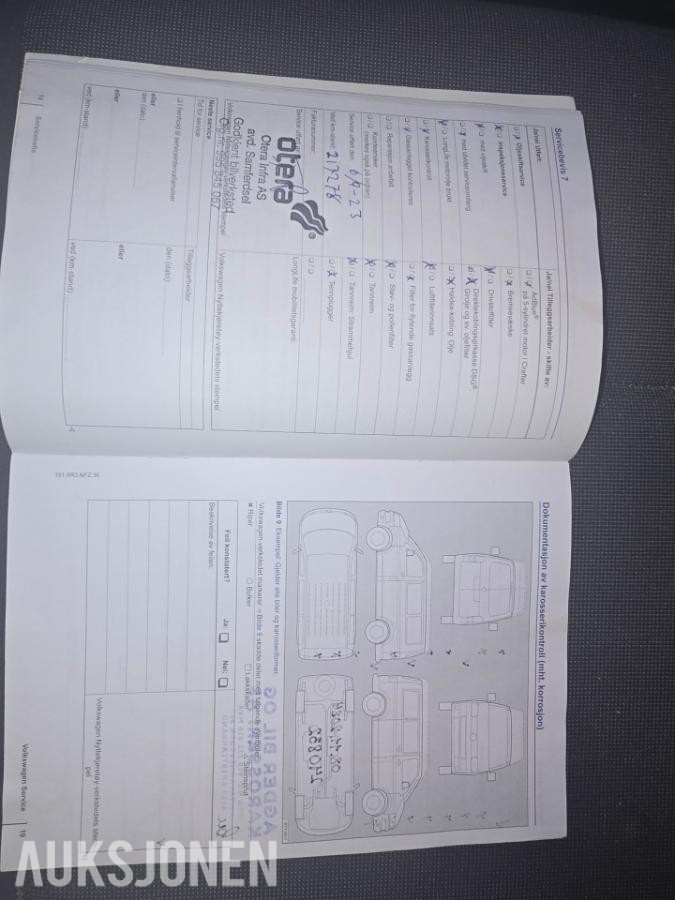 Servicebevis 7
Ja/nei Utført:
Oljeskiftservice
Inspeksjonsservice
med oljeskift
med utvidet serviceomfang
LongLife motorolje brukt
Karosserikontroll
Gassanlegget kontrolleres
Reparasjon anbefalt
Kundeønsker
Service utført den: 6/9-23
Ved km-stand: 217278
Fakturanummer:
Service utført av:
otera
Otera Infra AS
avd. Samferdsel
Godkjent bilverksted
Neste service
Tid for service
I henhold til serviceintervallviser
eller
den (dato):
eller
ved (km-stand):
18 | Servicehefte
Ja/nei Tilleggsarbeider - skifte av:
AdBlue®
på 5-sylindret motor i Crafter
Bremsevæske
Drivstoffilter
Direktekoblingsgirkasse DSG®
Girolje og ev. oljefilter
Haldex-kobling: Olje
Luftfilterinnsats
Filter for flytende gassanlegg
Støv- og pollenfilter
Tannreim
Tannreim: Strammehjul
Tennplugger
LongLife mobilitetsgaranti:
Volkswagen Nyttekjøretøy-verkstedets stempel
Tilleggsarbeider
den (dato):
eller
ved (km-stand):
Dokumentasjon av karosserikontroll (mht. korrosjon)
Bilde 9 Eksempel: Gjelder alle biler og karosseriformer.
Volkswagen-verkstedet markerer ⇒ Bilde 9 skadde deler med følgende symboler:
Riper
Bulker
Lakkskader
Steinsprut
AGDER BIL OG
Feil konstatert?
Ja:
Nei:
Beskrivelse av feilen:
Volkswagen Nyttekjøretøy-verkstedets stempel
Volkswagen Service | 19
AUKSJONEN